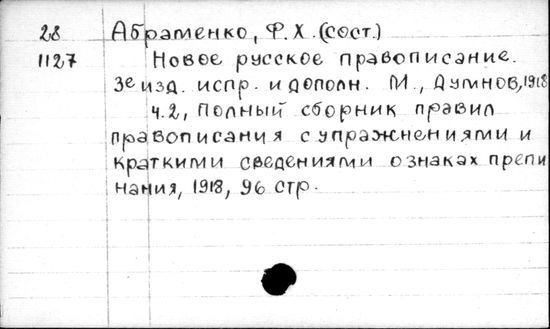 28 Абраменко, Ф. Х. (сост.)
1127 Новое русское правописание.
3е изд. испр. и дополн. М., Думнов, 1918
ч.2, Полный сборник правил
правописания с упражнениями и
краткими сведениями о знаках препи
нания, 1918, 96 стр.